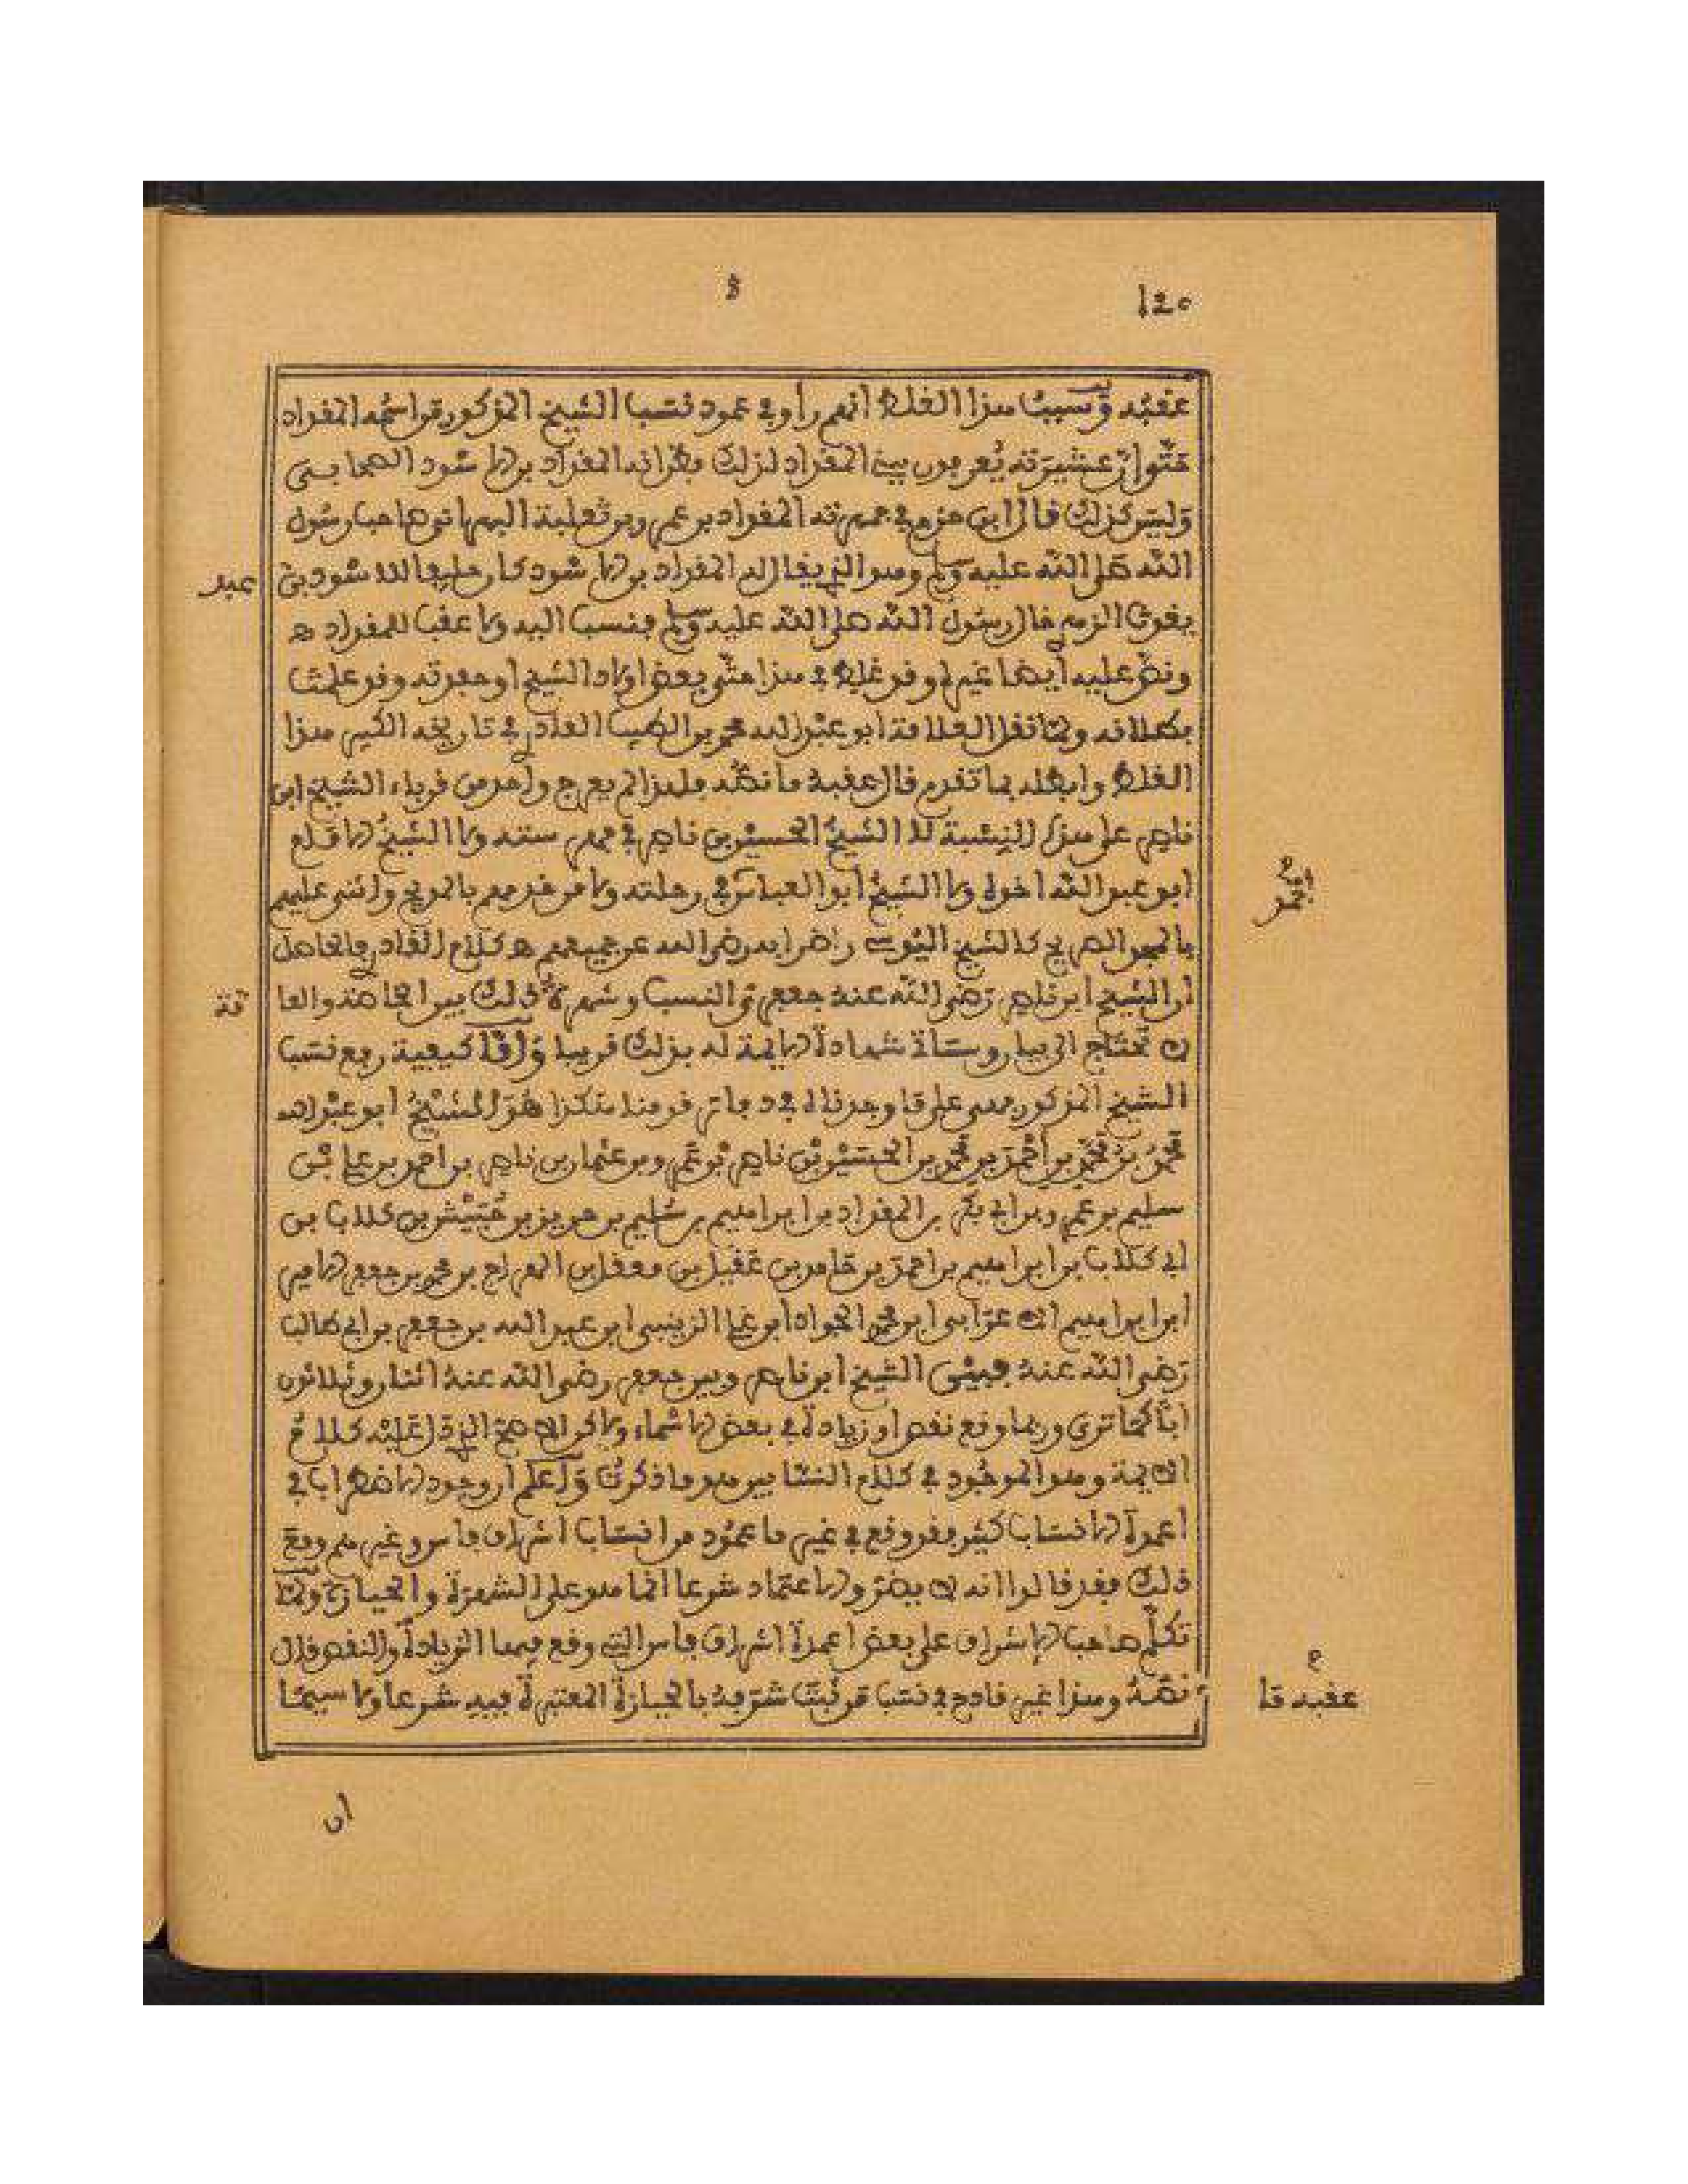 120
3
عقبه وسبب هذا الغلط انهم رأوا في عمود نسب الشيخ المذكور من اسمه المقداد
حتى ان عشيرته يعرفون ببني المقداد لذلك فظن انه المقداد بن الاسود الصحابي
وليس كذلك قال ابن حزم في جمهرته المقداد بن عمرو بن ثعلبة البهراني صاحب رسول
الله صلى الله عليه وسلم وهو الذي يقال له المقداد بن الاسود كان حليفا للاسود بن
عبد
يغوث الزهري خال رسول الله صلى الله عليه وسلم فنسب اليه ولا عقب للمقداد اه
ونص عليه أيضا غيره وقد غلط في هذا حتى بعض اولاد الشيخ أو حفدته وقد علمت
بطلانه ولما نقل العلامة أبو عبد الله محمد بن الطيب القادري في تاريخه الكبير هذا
الغلط وابطله بما تقدم قال عقبه ما نصه ولهذا لم يعرج واحد من قرباء الشيخ ابن
ناصر على هذه النسبة لا الشيخ الحسين بن ناصر في فهرسته ولا الشيخ الامام
ابو عبد الله اخوه ولا الشيخ أبو العباس في رحلته ولا من مدحهم بالمديح واثنى عليهم
بالمجد الصريح كالشيخ اليوسي واضرابه رضي الله عن جميعهم اه كلام القادري والحاصل
أن الشيخ ابن ناصر رضي الله عنه جعفري النسب وشهرة ذلك بين الخاصة والعا
مة
لا تحتاج الى بيان وستأتي شهادة الايمة له بذلك قريبا وأما كيفية رفع نسب
الشيخ المذكور فهي على ما وجدناه في دفاتر قومنا هكذا هو الشيخ أبو عبد الله
محمد بن محمد بن أحمد بن محمد بن الحسين بن ناصر بن عمرو بن عثمان بن ناصر بن احمد بن علي بن
سليم بن عمرو بن ابي بكر بن المقداد بن ابراهيم بن سليم بن حريز بن حبيش بن كلاب بن
أبي كلاب بن ابراهيم بن احمد بن حامد بن عقيل بن معقل بن الهراج بن محمد بن جعفر الامير
ابن ابراهيم الاعرابي ابن محمد الجواد ابن علي الزينبي ابن عبد الله بن جعفر بن ابي طالب
رضي الله عنه فبين الشيخ ابن ناصر وبين جعفر رضي الله عنه اثنان وثلاثون
ابا كما ترى وربما وقع نقص او زيادة في بعض الاسماء ولاكن الاصح الذي دل عليه كلام
الايمة وهو الموجود في كلام النسابين هو ما ذكرت واعلم ان وجود الاضطراب في
اعمدة الانساب كثير فقد وقع في غير ما عمود من انساب اشراف فاس وغيرهم ومع
ذلك فقد قالوا انه لا يضر والاعتماد شرعا انما هو على الشهرة والحيازة ولما
تكلم صاحب الاشراف على بعض اعمدة اشراف فاس التي وقع فيها الزيادة والنقص قال
عقبه ما
نصه وهذا غير قادح في نسب من ثبت شرفه بالحيازة المعتبرة فيه شرعا ولا سيما
ان